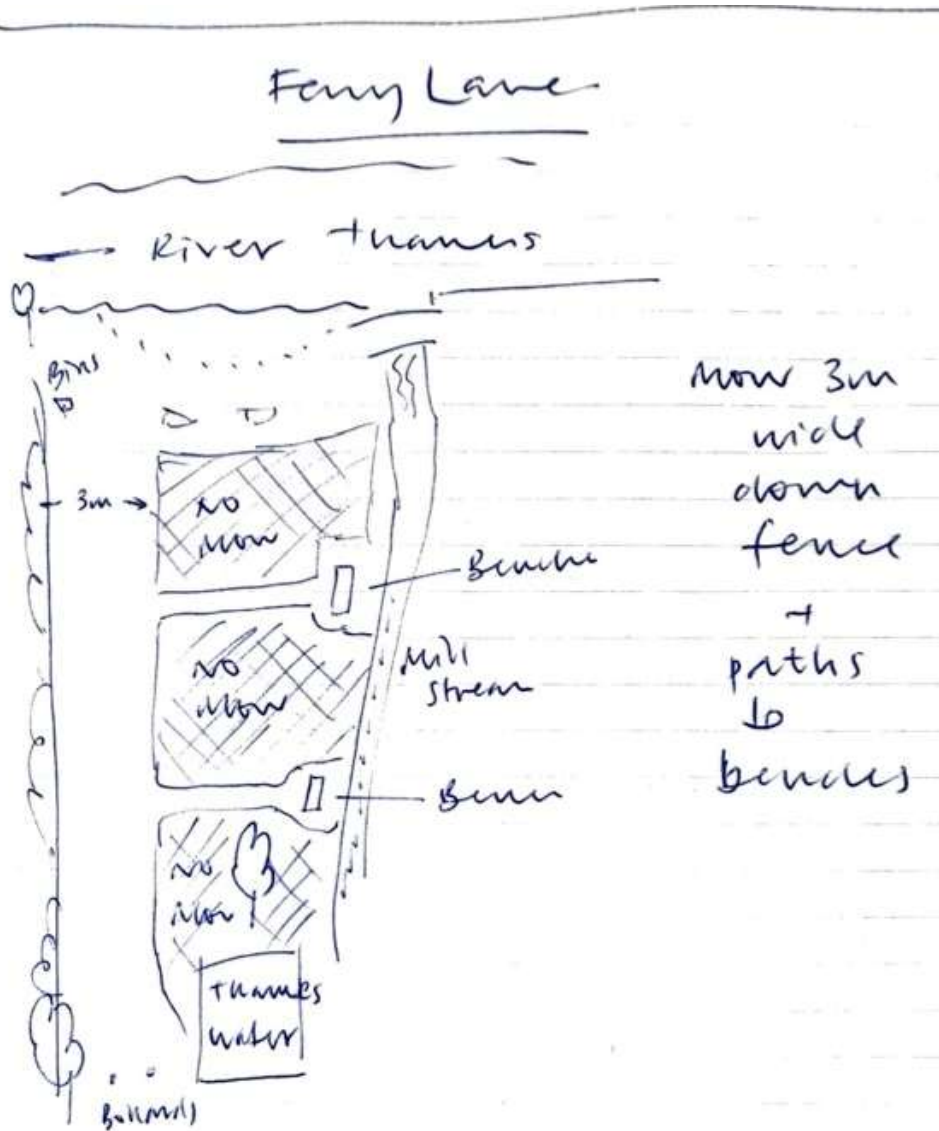 Ferry Lane
River Thames
Bins
3m
No
Mow
Bench
No
Mow
Mill
Stream
Bench
No
Mow
Thames
Water
Bollards
Mow 3m
wide
down
fence
+
paths
to
benches